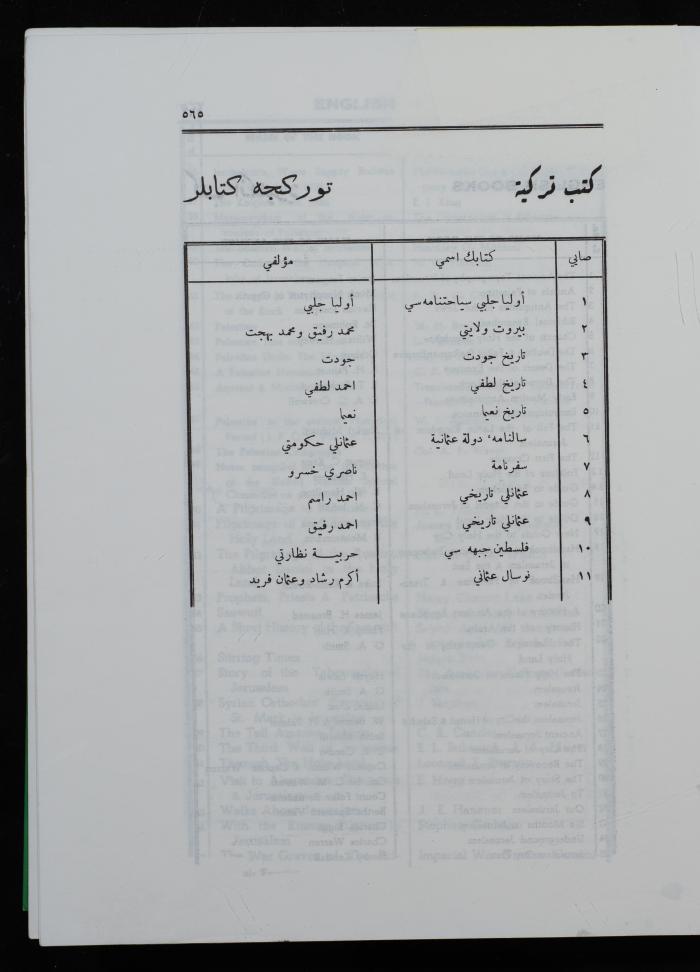 ٥٦٥
كتب تركية توركجه كتابلر
صايي كتابك اسمي مؤلفي
١ أوليا جلبي سياحتنامه سي أوليا جلبي
٢ بيروت ولايتي محمد رفيق ومحمد بهجت
٣ تاريخ جودت جودت
٤ تاريخ لطفي احمد لطفي
٥ تاريخ نعيما نعيما
٦ سالنامهء دولة عثمانية عثمانلي حكومتي
٧ سفرنامة ناصري خسرو
٨ عثمانلي تاريخي احمد راسم
٩ عثمانلي تاريخي احمد رفيق
١٠ فلسطين جبهه سي حربية نظارتي
١١ نوسال عثماني أكرم رشاد وعثمان فريد